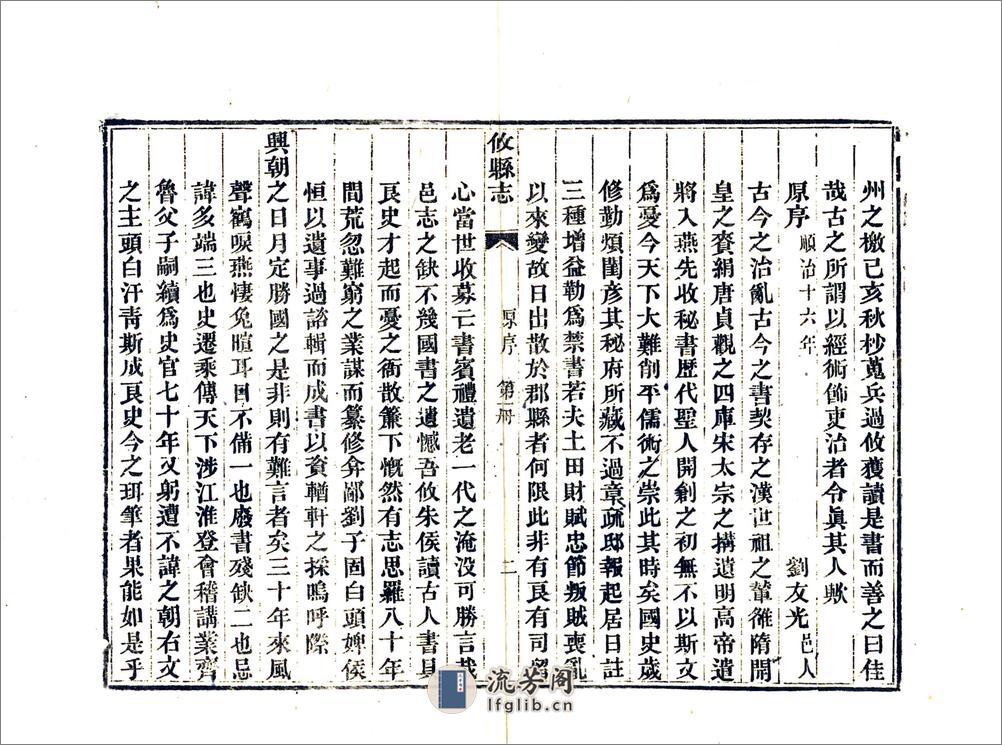 州之檄己亥秋杪蒐兵過攸獲讀是書而善之曰佳
哉古之所謂以經術飾吏治者令眞其人歟
原序 順治十六年 劉友光 邑人
古今之治亂古今之書契存之漢世祖之輦雒隋開
皇之賚絹唐貞觀之四庫宋太宗之搆遺明高帝遣
將入燕先收秘書歷代聖人開創之初無不以斯文
爲憂今天下大難削平儒術之崇此其時矣國史歲
修勤煩閨彥其秘府所藏不過章疏邸報起居日註
三種增益勒爲禁書若夫土田財賦忠節叛賊喪亂
以來變故日出散於郡縣者何限此非有良有司留
攸縣志 原序 第一册 二
心當世收募亡書賓禮遺老一代之淹没可勝言哉
邑志之缺不幾國書之遺憾吾攸朱侯讀古人書具
良史才起而憂之衙散簾下慨然有志思羅八十年
間荒忽難窮之業謀而纂修弇鄙劉子固白頭婢侯
恒以遺事過諮輯而成書以資輶軒之採嗚呼際
興朝之日月定勝國之是非則有難言者矣三十年來風
聲鶴唳燕悽兔暄耳目不備一也廢書殘缺二也忌
諱多端三也史遷乘傳天下涉江淮登會稽講業齊
魯父子嗣續爲史官七十年又躬遭不諱之朝右文
之主頭白汗靑斯成良史今之珥筆者果能如是乎
流芳阁
lfglib.cn